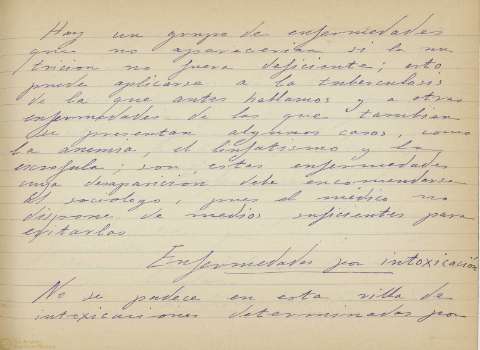 Hay un grupo de enfermedades
que no aparecerian si la nu
tricion no fuera deficiente; esto
puede aplicarse a la tuberculosis
de la que antes hablamos y a otras
enfermedades de las que tambien
se presentan algunos casos, como
la anemia, el linfatismo y la
escrofula; son estas enfermedades
cuya desaparicion debe encomendarse
al sociólogo, pues el médico no
dispone de medios suficientes para
evitarlas
Enfermedades por intoxicación
No se padece en esta villa de
intoxicaciones determinadas por